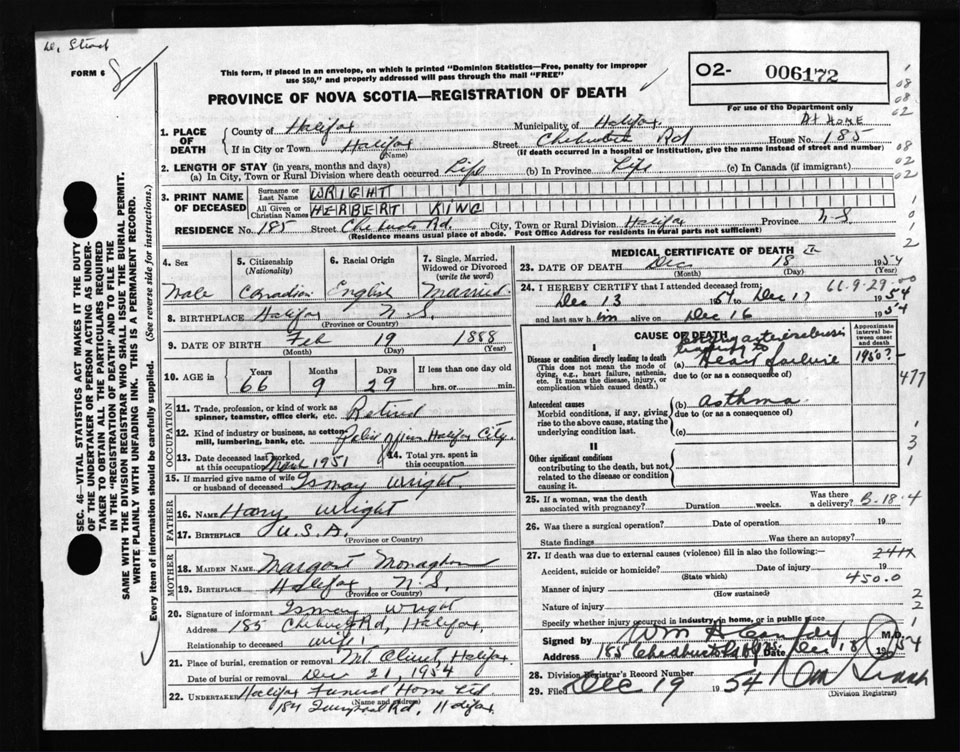 FORM 6
This form, if placed in an envelope, on which is printed "Dominion Statistics—Free, penalty for improper
use $50," and properly addressed will pass through the mail "FREE"
PROVINCE OF NOVA SCOTIA—REGISTRATION OF DEATH
02- 006172
For use of the Department only
At Home
1. PLACE OF DEATH
County of Halifax Municipality of Halifax
If in City or Town Halifax (Name) Street Chebucto Rd House No. 185
(If death occurred in a hospital or institution, give the name instead of street and number)
2. LENGTH OF STAY (in years, months and days)
(a) In City, Town or Rural Division where death occurred Life (b) In Province Life (c) In Canada (if immigrant)
3. PRINT NAME OF DECEASED
Surname or Last Name WRIGHT
All Given or Christian Names HERBERT KING
RESIDENCE No. 185 Street Chebucto Rd. City, Town or Rural Division Halifax Province N.S.
(Residence means usual place of abode. Post Office Address for residents in rural parts not sufficient)
SEC. 46—VITAL STATISTICS ACT MAKES IT THE DUTY
OF THE UNDERTAKER OR PERSON ACTING AS UNDER-
TAKER TO OBTAIN ALL THE PARTICULARS REQUIRED
IN THE "REGISTRATION OF DEATH" AND TO FILE THE
SAME WITH THE DIVISION REGISTRAR WHO SHALL ISSUE THE BURIAL PERMIT.
WRITE PLAINLY WITH UNFADING INK. THIS IS A PERMANENT RECORD.
Every item of information should be carefully supplied. (See reverse side for instructions.)
4. Sex
Male
5. Citizenship (Nationality)
Canadian
6. Racial Origin
English
7. Single, Married, Widowed or Divorced (write the word)
Married
8. BIRTHPLACE Halifax N.S.
(Province or Country)
9. DATE OF BIRTH Feb 19 1888
(Month) (Day) (Year)
10. AGE in Years Months Days If less than one day old
66 9 29 hrs. or min.
OCCUPATION
11. Trade, profession, or kind of work as spinner, teamster, office clerk, etc. Retired
12. Kind of industry or business, as cotton-mill, lumbering, bank, etc. Police Officer Halifax City.
13. Date deceased last worked at this occupation 1951
14. Total yrs. spent in this occupation
15. If married give name of wife or husband of deceased Ismay Wright
FATHER
16. NAME Harry Wright
17. BIRTHPLACE U.S.A.
(Province or Country)
MOTHER
18. MAIDEN NAME Margaret Monaghan
19. BIRTHPLACE Halifax, N.S.
(Province or Country)
20. Signature of informant Ismay Wright
Address 185 Chebucto Rd, Halifax,
Relationship to deceased wife
21. Place of burial, cremation or removal Mt. Olivet, Halifax.
Date of burial or removal Dec 21, 1954
22. UNDERTAKER Halifax Funeral Home Ltd
(Name and address)
Rd, Halifax.
MEDICAL CERTIFICATE OF DEATH
23. DATE OF DEATH Dec 18 1954
(Month) (Day) (Year)
66-9-29
24. I HEREBY CERTIFY that I attended deceased from:
Dec 13 1954 to Dec 17 1954
and last saw him alive on Dec 16 1954
CAUSE OF DEATH
Approximate interval between onset and death
I
Disease or condition directly leading to death
(This does not mean the mode of
dying, e.g., heart failure, asthenia,
etc. It means the disease, injury, or
complication which caused death.)
(a) Heart Failure 1950?-
due to (or as a consequence of)
Antecedent causes
Morbid conditions, if any, giving
rise to the above cause, stating the
underlying condition last.
(b) asthma
due to (or as a consequence of)
(c)
II
Other significant conditions
contributing to the death, but not
related to the disease or condition
causing it.
25. If a woman, was the death associated with pregnancy? Duration weeks. Was there a delivery? B-18-4
26. Was there a surgical operation? Date of operation 19
State findings Was there an autopsy?
27. If death was due to external causes (violence) fill in also the following:— 241X
Accident, suicide or homicide? (State which) Date of injury 19
450.0
Manner of injury (How sustained)
Nature of injury
Specify whether injury occurred in industry in home, or in public place
Signed by Wm A M.D.
Address 185 Date Dec 18 1954
28. Division Registrar's Record Number
29. Filed Dec 19 1954
(Division Registrar)